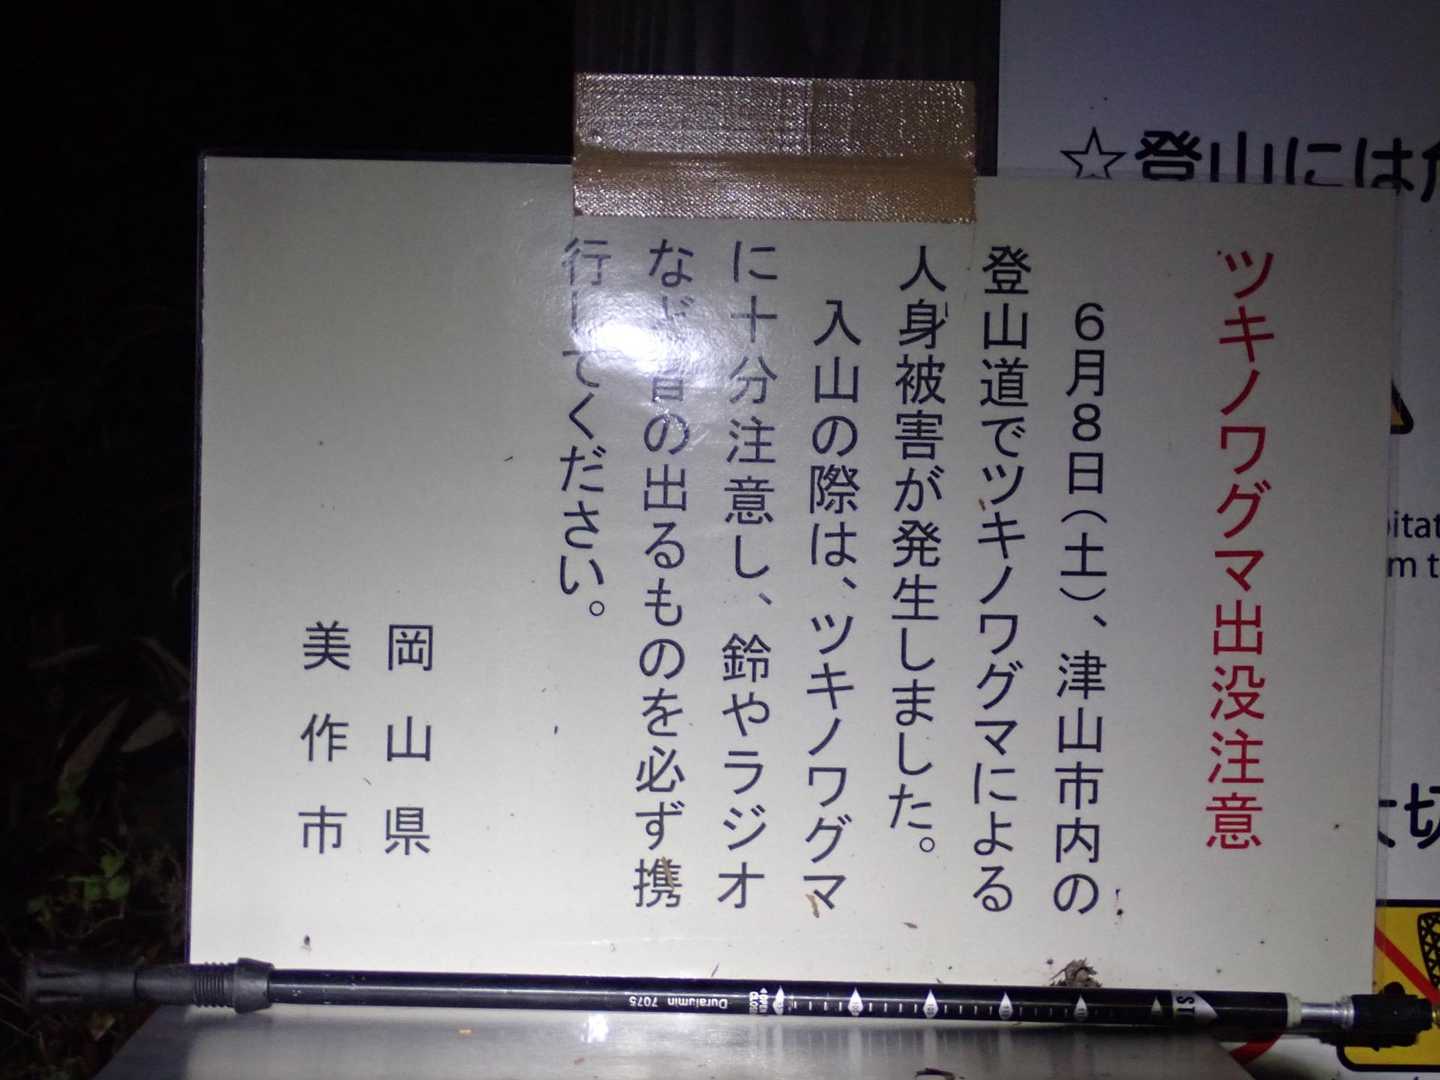 ツキノワグマ出没注意
6月8日(土)、津山市内の
登山道でツキノワグマによる
人身被害が発生しました。
入山の際は、ツキノワグマ
に十分注意し、鈴やラジオ
など音の出るものを必ず携
行してください。
岡山県
美作市
☆登山には
m t
Duralumin 7075
ST